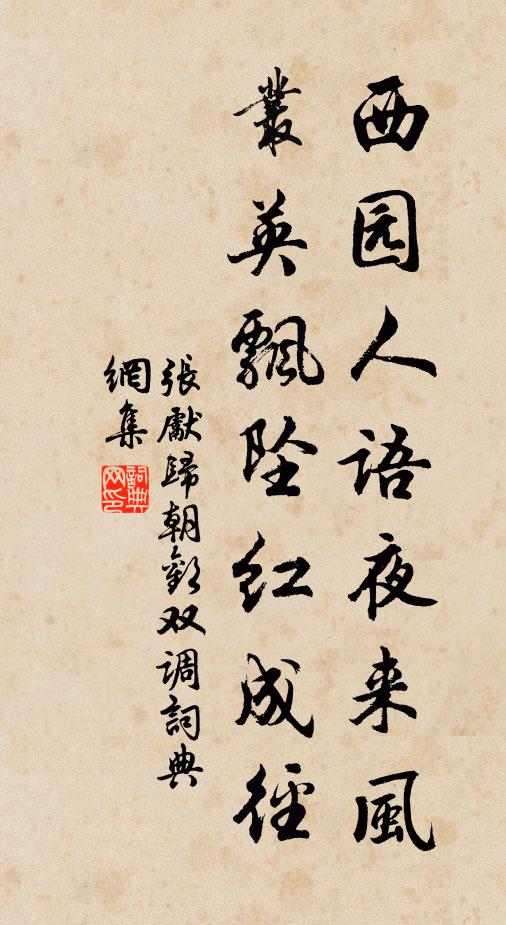 西园人语夜来風
叢英飄坠红成徑
張獻歸朝歡双调詞典
網集
詞典
网印